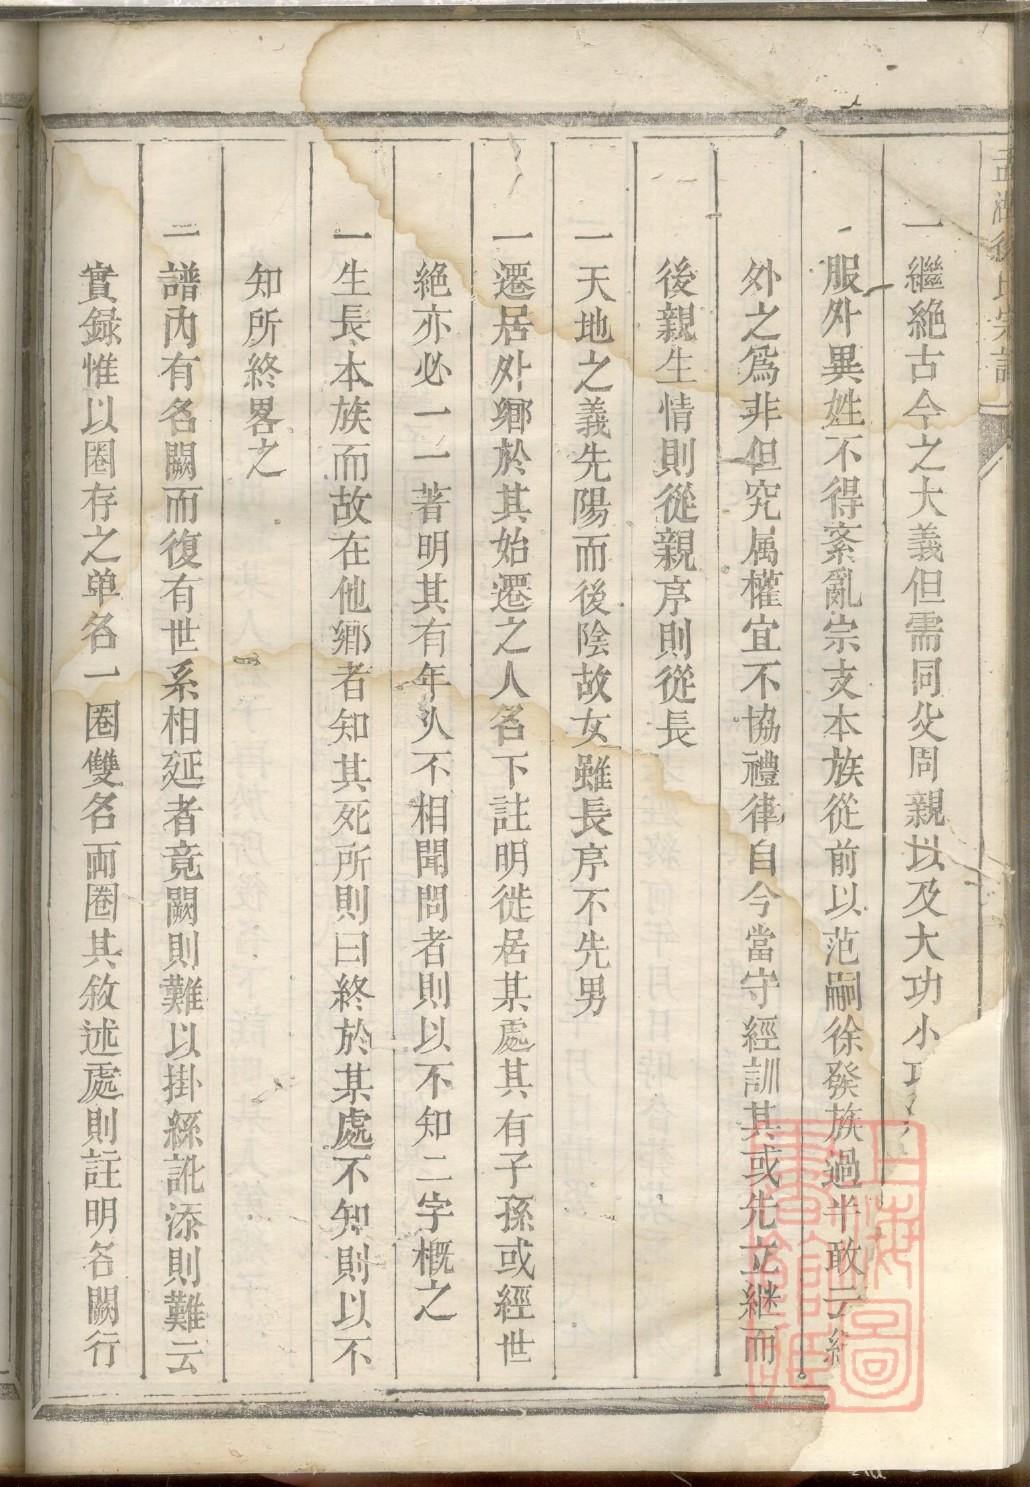 孟湖徐氏宗譜
一繼絶古今之大義但需同父周親以及大功小功
服外異姓不得紊亂宗支本族從前以范嗣徐發族過半敢云
外之爲非但究属權宜不協禮律自今當守經訓其或先立継而
後親生情則從親序則從長
一天地之義先陽而後陰故女雖長序不先男
一遷居外鄉於其始遷之人名下註明徙居某處其有子孫或經世
絶亦必一一著明其有年久不相聞問者則以不知二字概之
一生長本族而故在他鄉者知其死所則曰終於某處不知則以不
知所終畧之
一譜內有名闕而復有世系相延者竟闕則難以掛綜訛添則難云
實録惟以圈存之单名一圈雙名両圈其敘述處則註明名闕行
上海圖書館藏